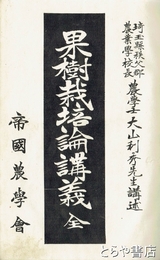 埼玉縣秩父郡
農業學校長
農學士大山利秀先生講述
果樹栽培論講義 全
帝國農學會
古書
とらや書房